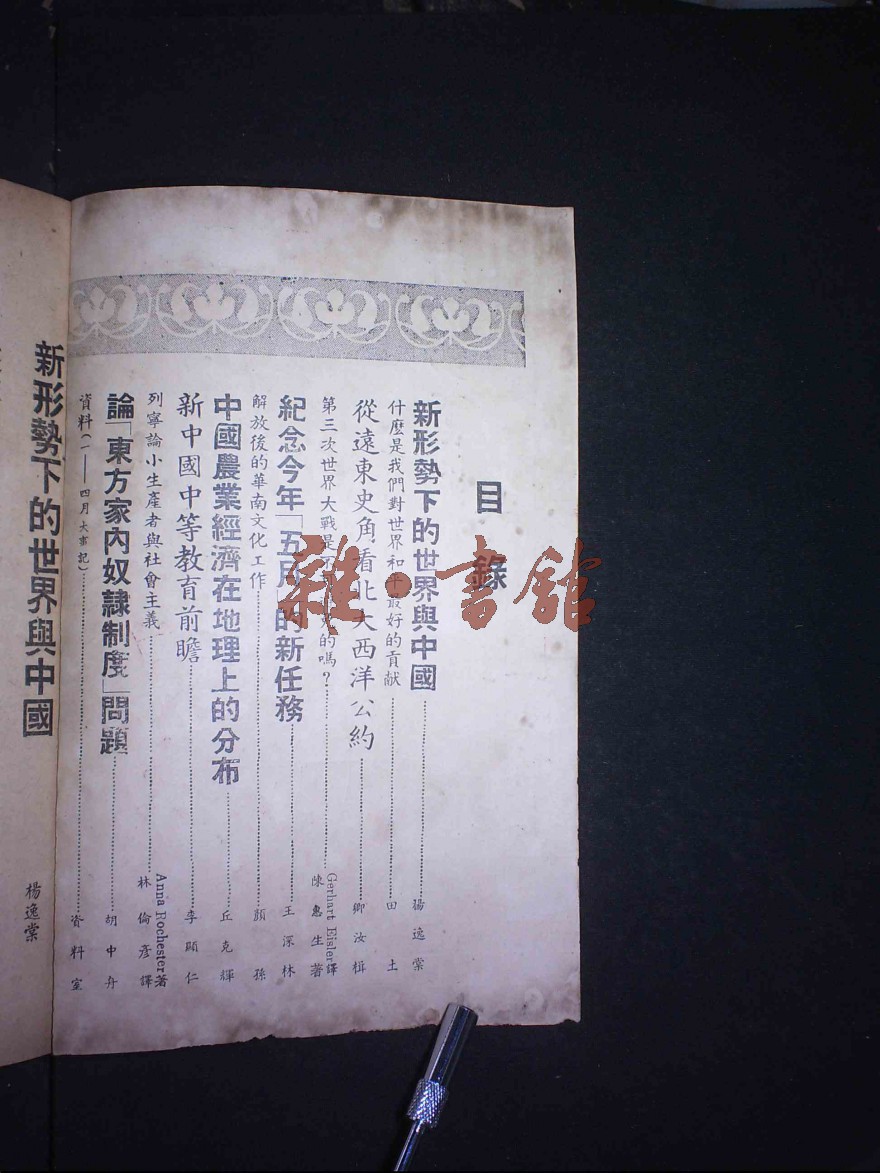 目錄
新形勢下的世界與中國……楊逸棠
什麼是我們對世界和平最好的貢献……田土
從遠東史角看北大西洋公約……卿汝楫
第三次世界大戰是不可的嗎?……Gerhart Eisler譯
陳惠生著
紀念今年「五月」的新任務……王深林
解放後的華南文化工作……顏孫
中國農業經濟在地理上的分布……丘克輝
新中國中等教育前瞻……李顯仁
列寧論小生產者與社會主義……Anna Rochester著
林倫彥譯
論「東方家內奴隷制度」問題……胡中舟
資料(一——四月大事記)……資料室
新形勢下的世界與中國
楊逸棠
雜·書館